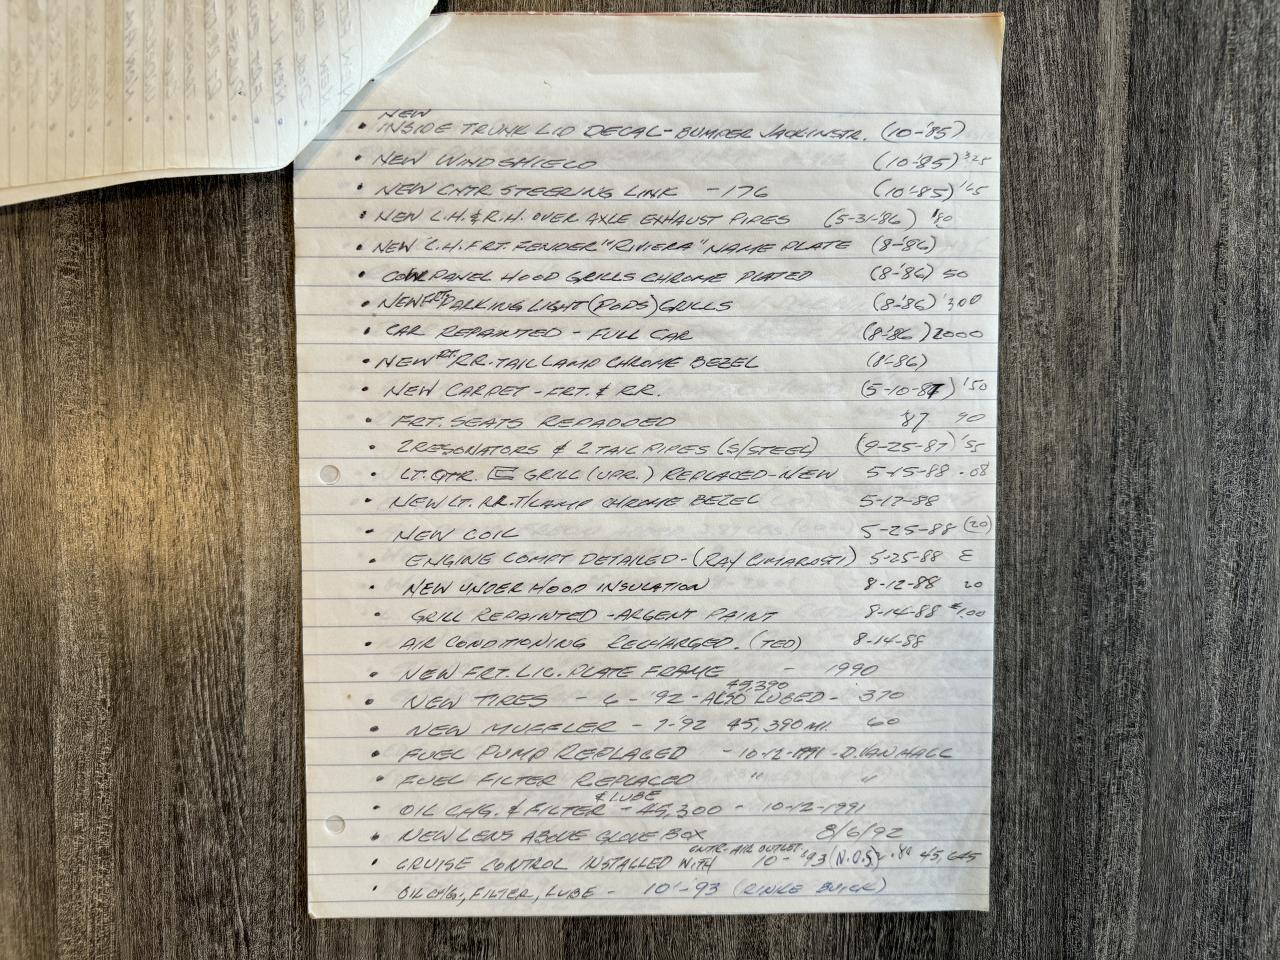 NEW
• INSIDE TRUNK LID DECAL-BUMPER JACK INSTR. (10-'85)
• NEW WINDSHIELD (10-'85) 325
• NEW CNTR STEERING LINK -176 (10'-85)
• NEW L.H. & R.H. OVER AXLE EXHAUST PIPES (5-31-'86)
• NEW L.H. FRT. FENDER "RIVIERA" NAME PLATE (8-'86)
• COWL PANEL HOOD GRILLS CHROME PLATED (8-'86) 50
• NEW FRT. PARKING LIGHT (PODS) GRILLS (8-'86) 300
• CAR REPAINTED - FULL CAR (8-'86) 2000
• NEW RT. RR. TAIL LAMP CHROME BEZEL (8-86)
• NEW CARPET - FRT. & RR. (5-10-87) 150
• FRT. SEATS REPADDED '87 90
• 2 RESONATORS & 2 TAIL PIPES (S/STEEL) (9-25-87)
• LT. QTR. E GRILL (UPR.) REPLACED-NEW 5-15-88
• NEW LT. RR. T/LAMP CHROME BEZEL 5-17-88
• NEW COIL 5-25-88 (20)
• ENGINE COMPT DETAILED - (RAY CIMAROSTI) 5-25-88
• NEW UNDER HOOD INSULATION 8-12-88 20
• GRILL REPAINTED - ARGENT PAINT 8-14-88
• AIR CONDITIONING RECHARGED. (TED) 8-14-88
• NEW FRT. LIC. PLATE FRAME - 1990
45,390
• NEW TIRES - 6 - '92 - ALSO LUBED - 370
• NEW MUFFLER - 7-'92 45,390 MI. 60
• FUEL PUMP REPLACED - 10-12-1991 - D. VANHALL
• FUEL FILTER REPLACED " "
& LUBE
• OIL CHG. & FILTER - 45,300 - 10-12-1991
• NEW LENS ABOVE GLOVE BOX 8/6/92
CNTR. AIR OUTLET
• CRUISE CONTROL INSTALLED WITH 10-'93 (N.O.S) 45,645
• OIL CHG., FILTER, LUBE - 10'-93 (RINKE BUICK)